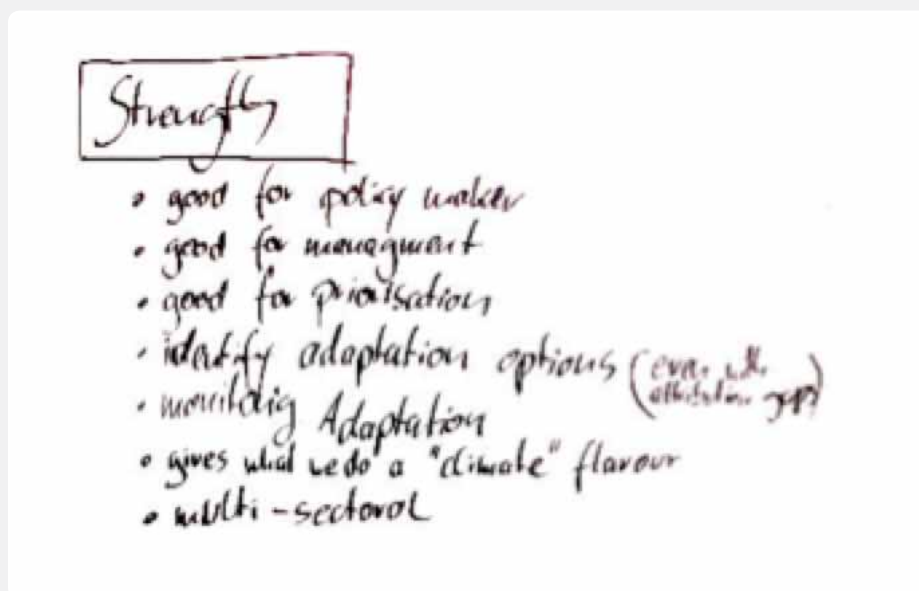 Strength
• good for policy maker
• good for managment
• good for priorisation
• identify adaptation options (even with gaps)
• monitoring Adaptation
• gives what we do a "climate" flavour
• multi-sectoral